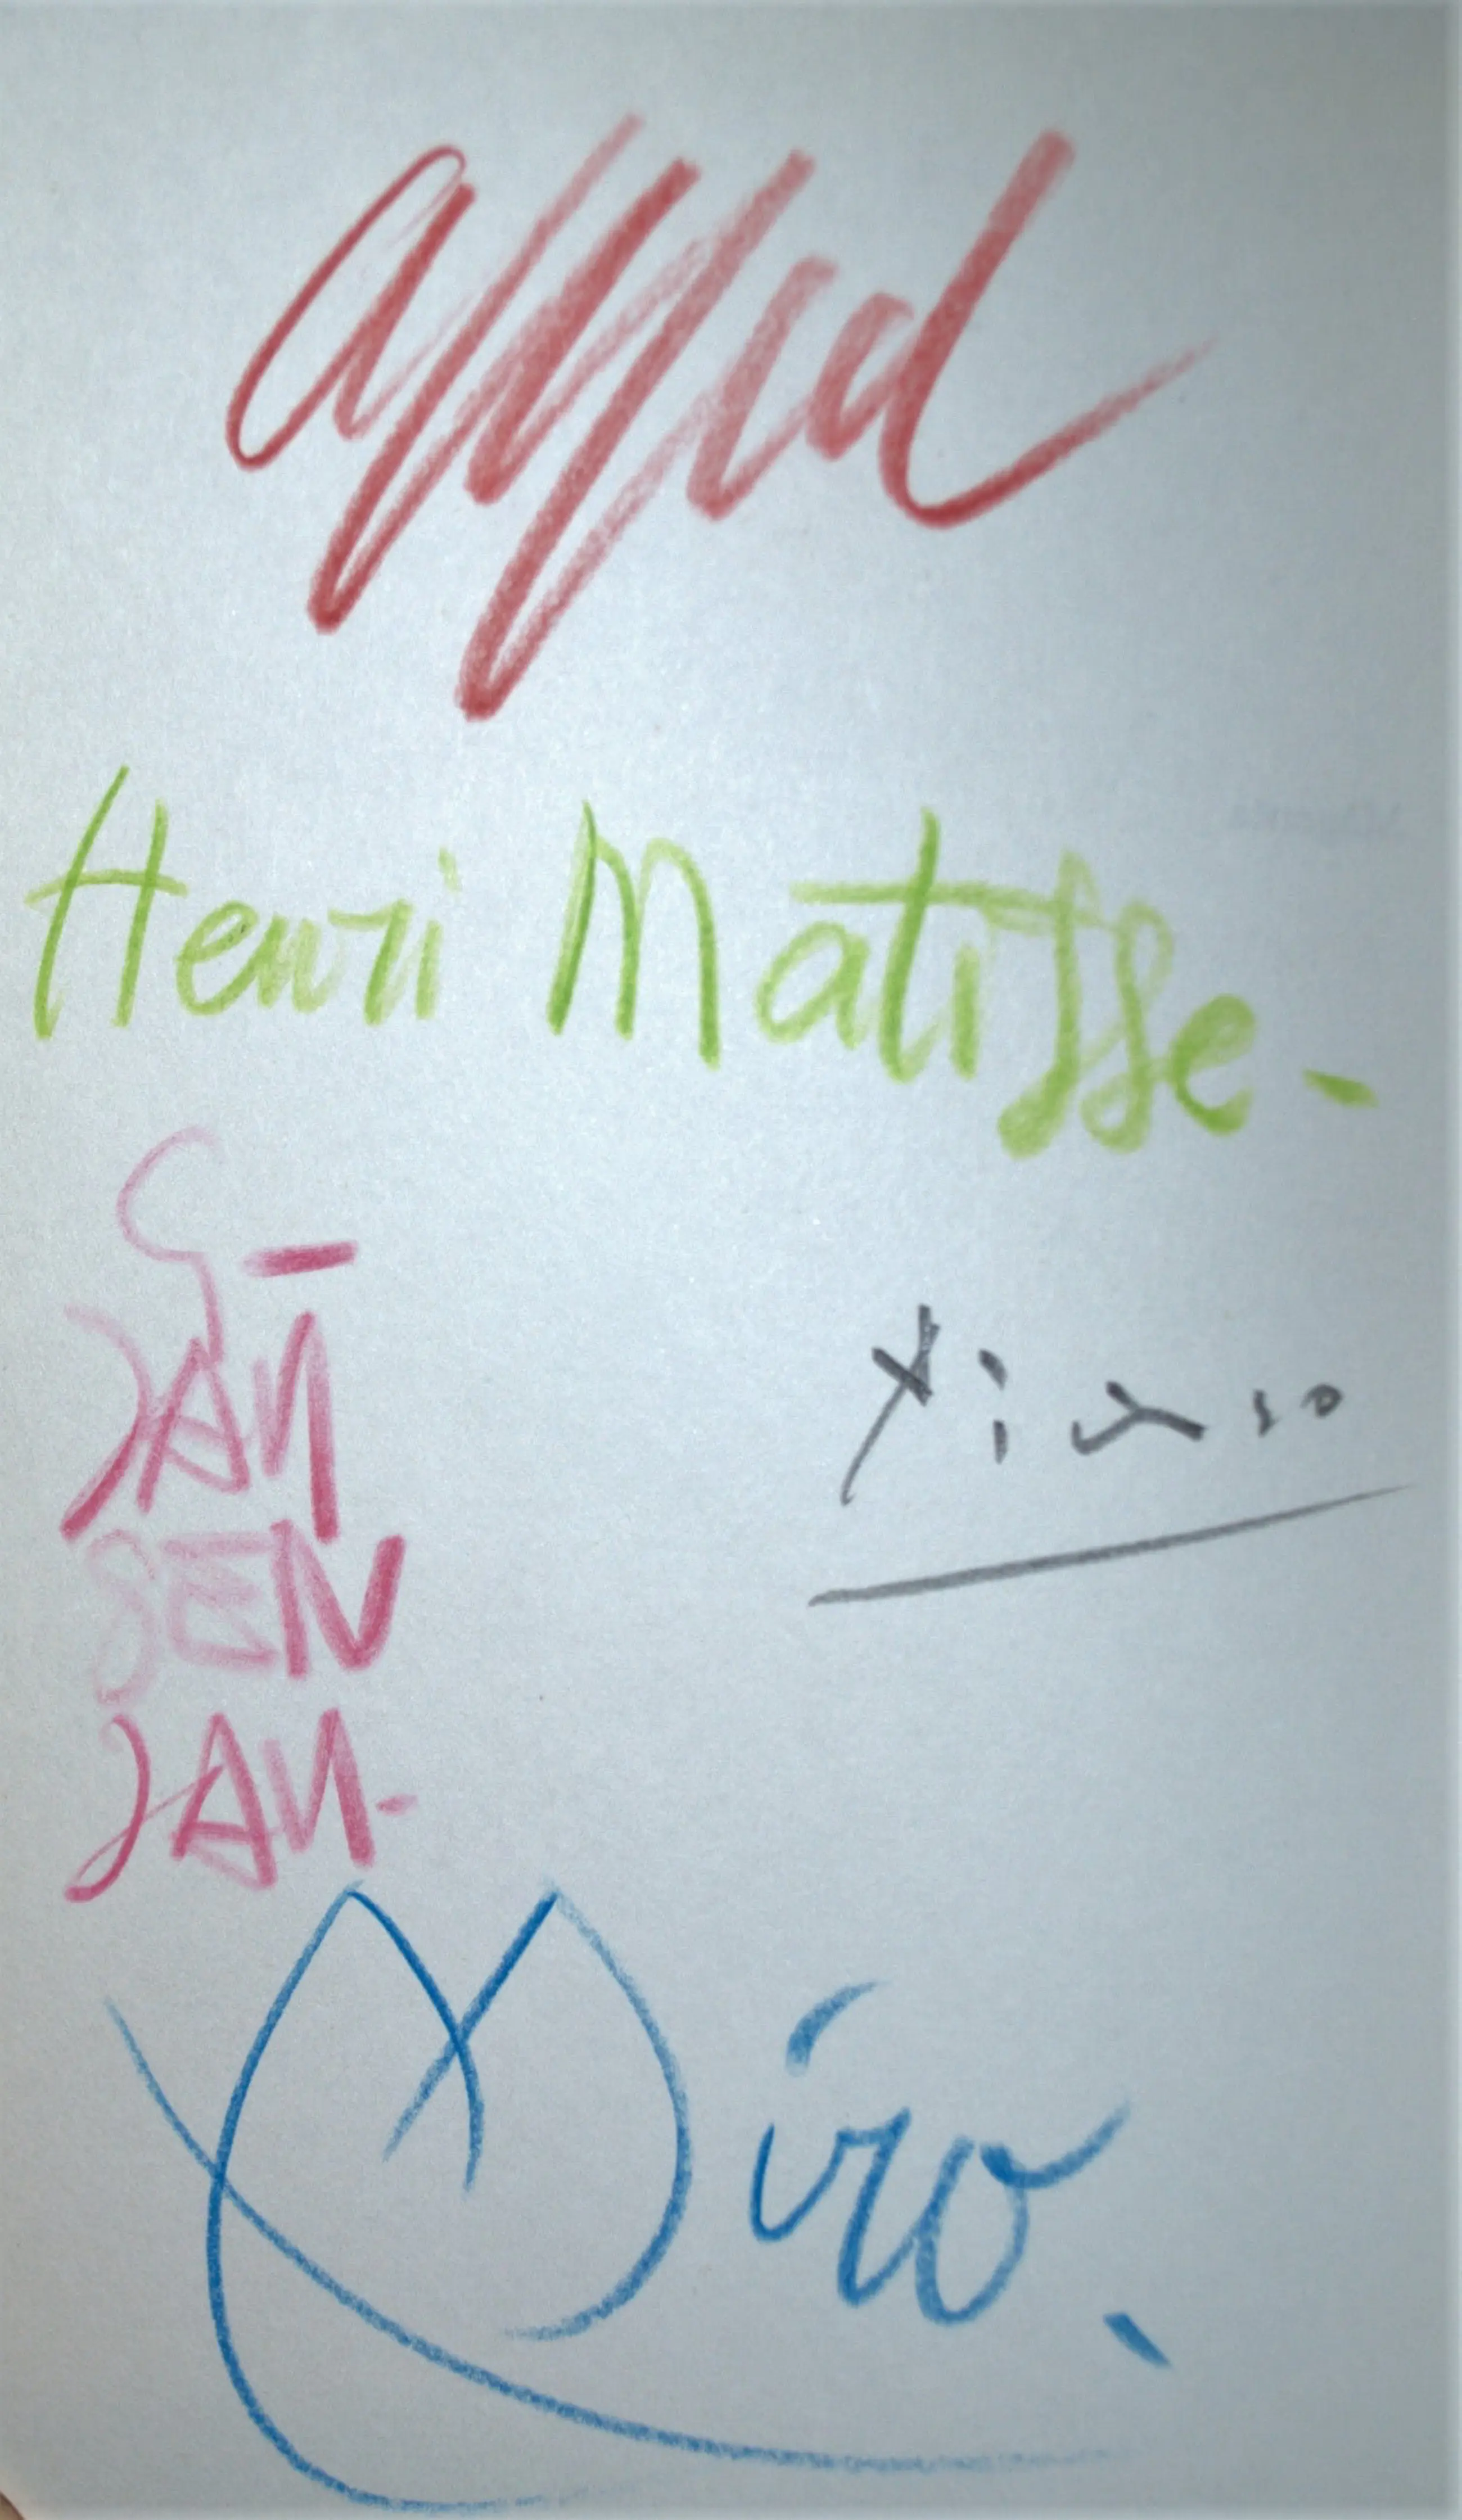 appel
Henri Matisse-
JAN
Picasso
SEN
JAN-
Miro.